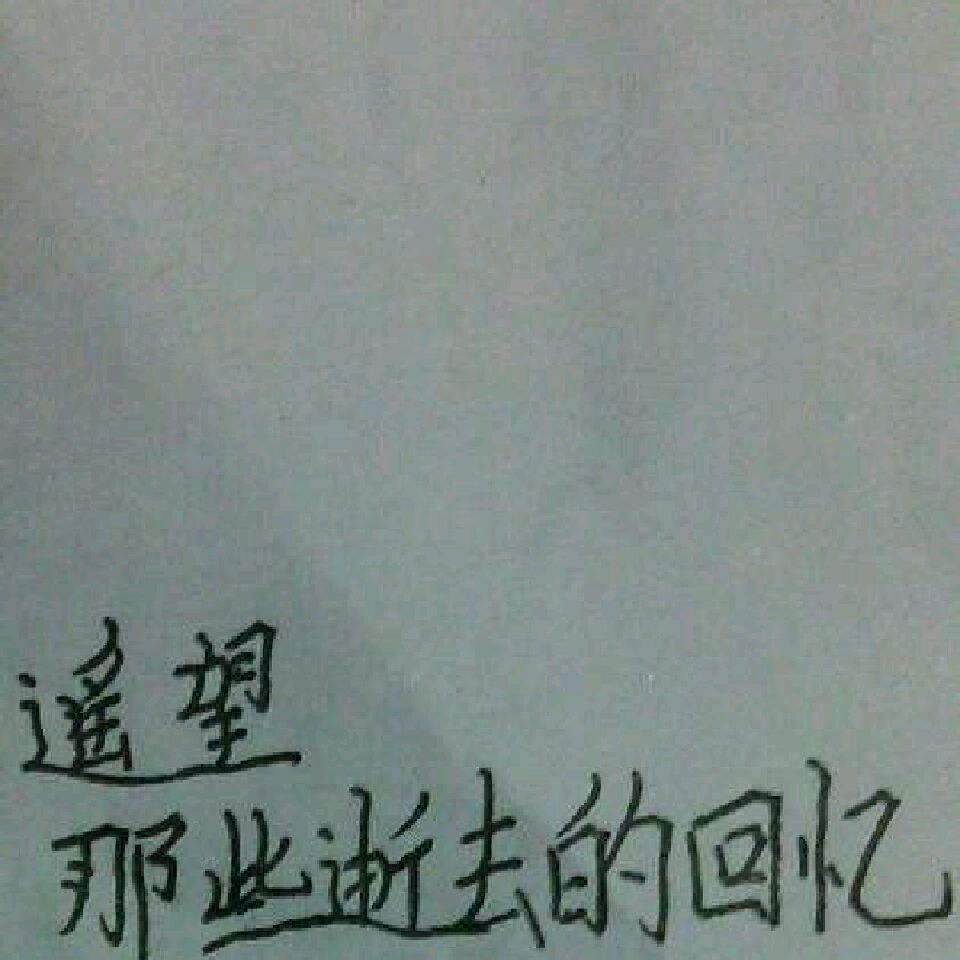 遥望
那些逝去的回忆